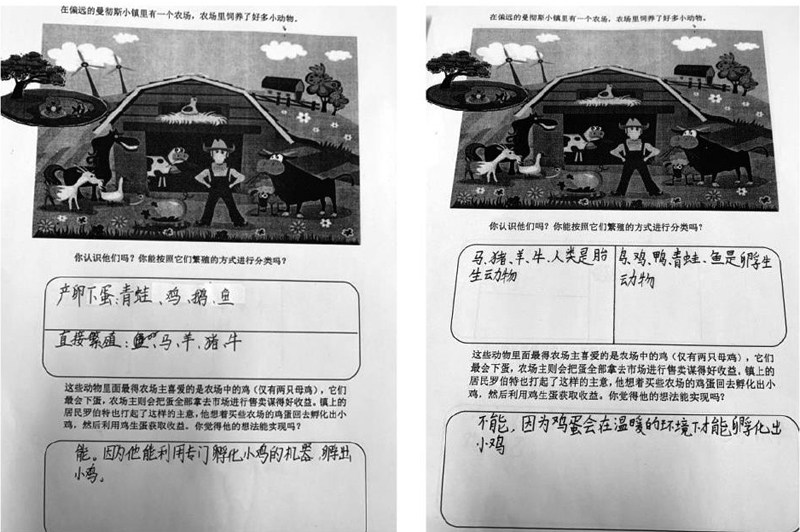 在偏远的曼彻斯小镇里有一个农场，农场里饲养了好多小动物。
你认识他们吗？你能按照它们繁殖的方式进行分类吗？
产卵下蛋：青蛙、鸡、鹅、鱼
直接繁殖：马、羊、猪、牛
这些动物里面最得农场主喜爱的是农场中的鸡（仅有两只母鸡），它们
最会下蛋，农场主则会把蛋全部拿去市场进行售卖谋得好收益。镇上的
居民罗伯特也打起了这样的主意，他想着买些农场的鸡蛋回去孵化出小
鸡，然后利用鸡生蛋获取收益。你觉得他的想法能实现吗？
能。因为他能利用专门孵化小鸡的机器，孵出
小鸡。
在偏远的曼彻斯小镇里有一个农场，农场里饲养了好多小动物。
你认识他们吗？你能按照它们繁殖的方式进行分类吗？
马、猪、羊、牛、人类是胎
生动物
鸡、鸭、青蛙、鱼是孵生
动物
这些动物里面最得农场主喜爱的是农场中的鸡（仅有两只母鸡），它们
最会下蛋，农场主则会把蛋全部拿去市场进行售卖谋得好收益。镇上的
居民罗伯特也打起了这样的主意，他想着买些农场的鸡蛋回去孵化出小
鸡，然后利用鸡生蛋获取收益。你觉得他的想法能实现吗？
不能，因为鸡蛋会在温暖的环境下才能孵化出
小鸡